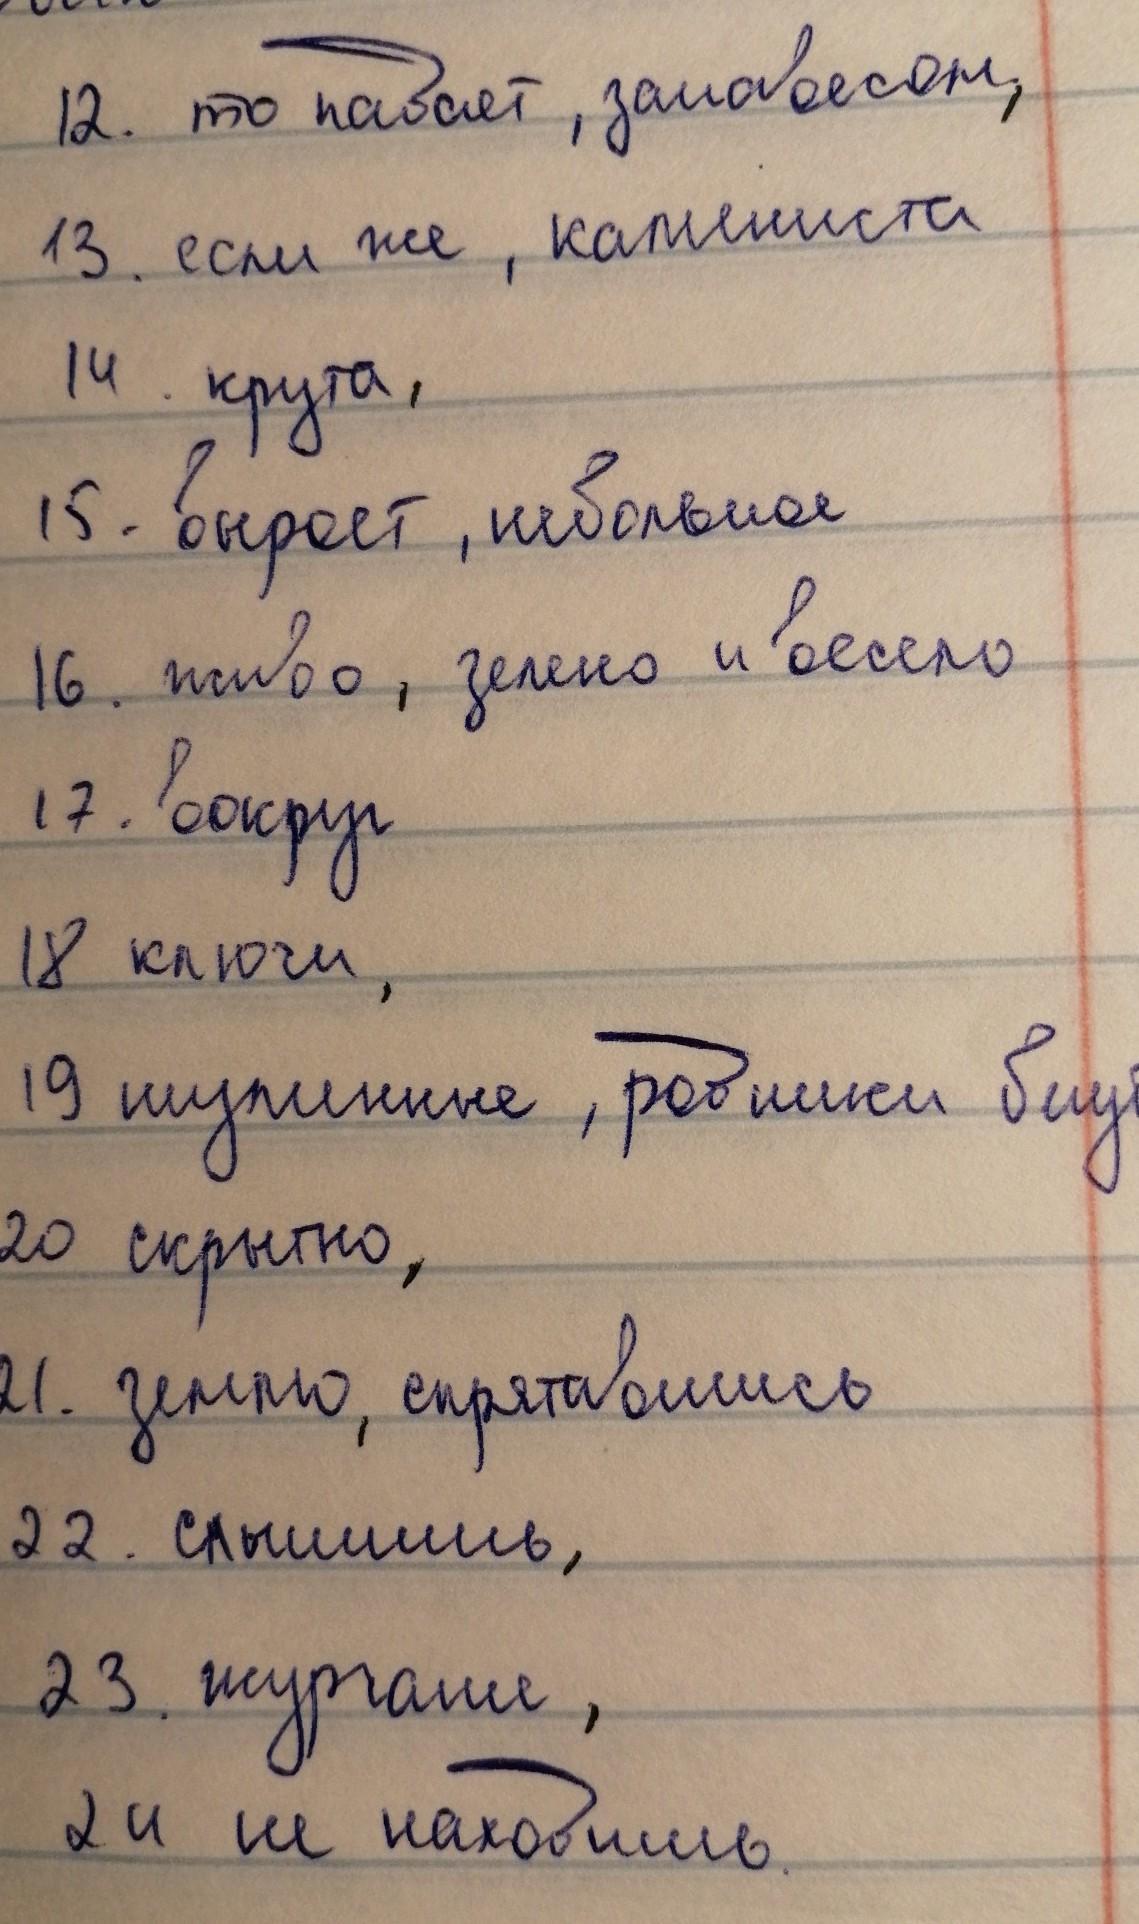 12. то падает, занавесом,
13. если же, камениста
14. крута,
15. вырост, небольшое
16. живо, зелено и весело
17. вокруг
18 ключи,
19 шумнные, родники бьют
20 скрытно,
21. землю, спрятавшись
22. слышишь,
23. журчание,
24 не находишь.